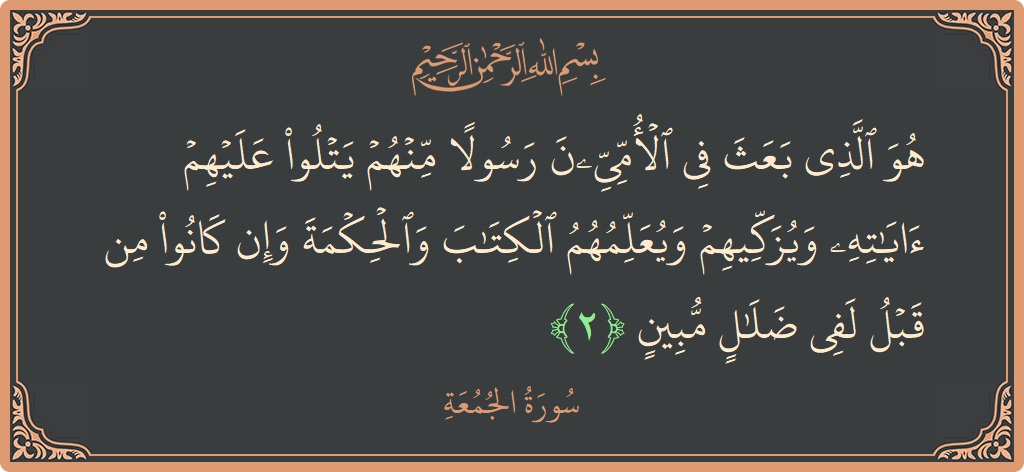 بِسْمِ اللَّهِ الرَّحْمَٰنِ الرَّحِيمِ
هُوَ ٱلَّذِى بَعَثَ فِى ٱلْأُمِّيِّۦنَ رَسُولًا مِّنْهُمْ يَتْلُوا۟ عَلَيْهِمْ
ءَايَـٰتِهِۦ وَيُزَكِّيهِمْ وَيُعَلِّمُهُمُ ٱلْكِتَـٰبَ وَٱلْحِكْمَةَ وَإِن كَانُوا۟ مِن
قَبْلُ لَفِى ضَلَـٰلٍ مُّبِينٍ ﴿٢﴾
سُورَةُ الجُمُعَةِ